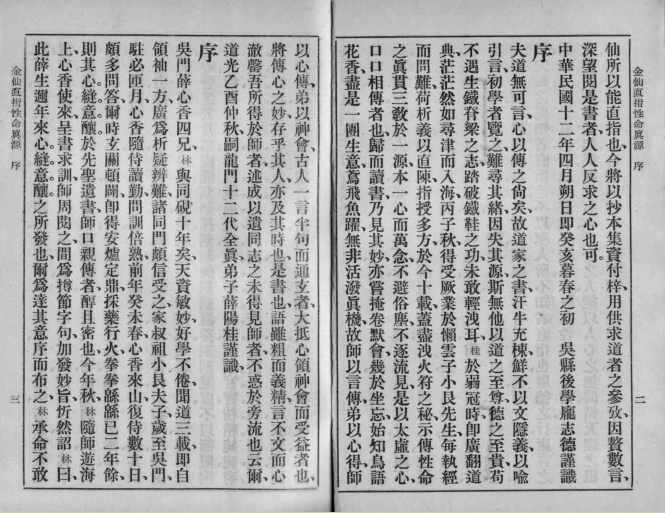 金仙直指性命眞源 序
二
仙所以能直指也今將以抄本集資付梓用供求道者之參攷因贅數言
深望閱是書者人人反求之心也可
中華民國十二年四月朔日即癸亥暮春之初 吳縣後學龐志德謹識
序
夫道無可言心以傳之尙矣故道家之書汗牛充棟鮮不以文隱義以喩
引言初學者覽之難尋其緖因失其源斯無他以道之至尊德之至貴苟
不遇生鐵脊梁之志踏破鐵鞋之功未敢輕洩耳桂於弱冠時即廣翻道
典茫茫然如尋津而入海丙子秋得受厥業於懶雲子小艮先生每執經
而問難荷析義以直陳指授多方於今十載蓋盡洩火符之秘示傳性命
之眞貫三敎於一源本一心而萬念不避俗塵不逐流見是以太虛之心
口口相傳者也歸而讀書乃見其妙亦嘗掩卷默會幾於坐忘始知鳥語
花香盡是一團生意鳶飛魚躍無非活潑眞機故師以言傳弟以心得師
以心傳弟以神會古人一言半句而通玄者大抵心領神會而受益者也
將傳心之妙存乎其人亦及其時也是書也語雖粗而義精言不文而心
澈罄吾所得於師者述成以遺同志之未得見師者不惑於旁流也云爾
道光乙酉仲秋嗣龍門十二代全眞弟子薛陽桂謹識
序
吳門薛心香四兄林與同硯十年矣天資敏妙好學不倦聞道三載即自
領袖一方廣爲析疑辨難諸同門頗信受之家叔祖小艮夫子歲至吳門
駐必匝月心香隨侍讀勤問訓倍熟前年癸未春心香來山復侍數十日
頗多問答爾時玄關頓闢即得安爐定鼎採藥行火拳拳緜緜已二年餘
則其心縫意釀於先聖遺書師口親傳者醇且密也今年秋林隨師遊海
上心香使來呈書求訓師周閱之間爲撙節字句加發妙旨忻然詔林曰
此薛生邇年來心縫意釀之所發也爾爲達其意序而布之林承命不敢
金仙直指性命眞源 序
三